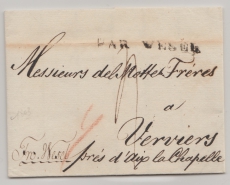 PAR WESEL
Messieurs de Mottet Fréres
a
Verviers
frco Wesel près d'Aix la Chapelle